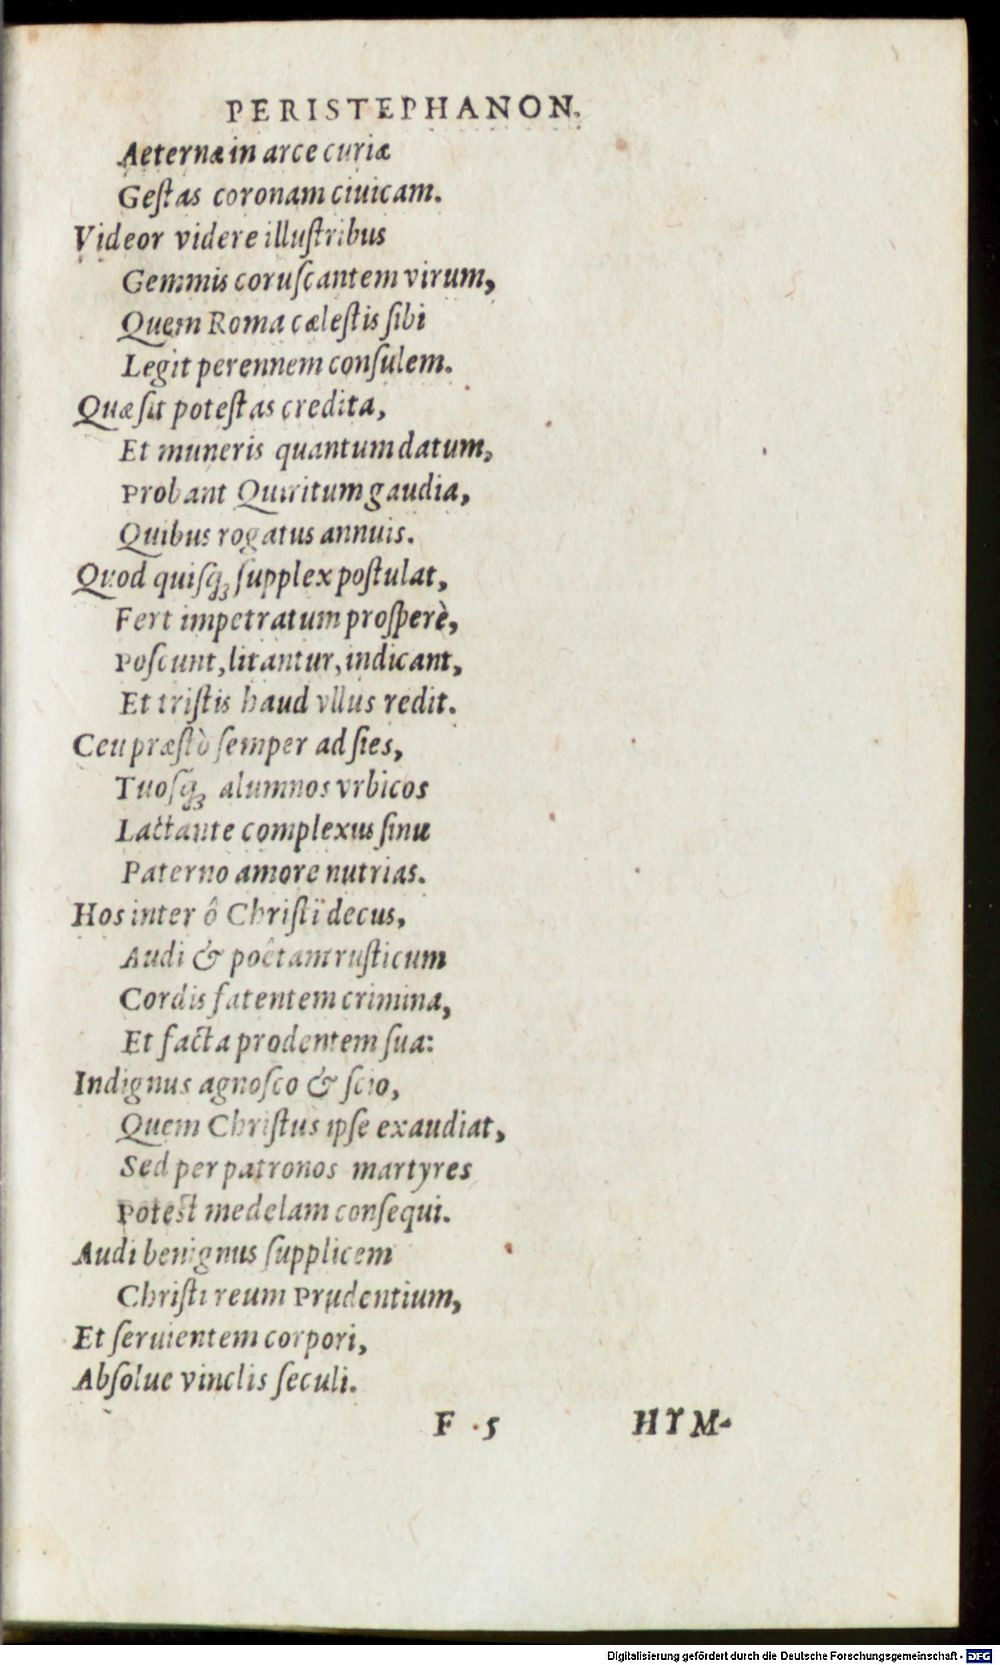 PERISTEPHANON.
Aeternæ in arce curiæ
Geſtas coronam ciuicam.
Videor videre illuſtribus
Gemmis coruſcantem virum,
Quem Roma cæleſtis ſibi
Legit perennem conſulem.
Quæ ſit poteſtas credita,
Et muneris quantum datum,
Probant Quiritum gaudia,
Quibus rogatus annuis.
Quod quiſq; ſupplex poſtulat,
Fert impetratum proſperè,
Poſcunt, litantur, indicant,
Et triſtis haud vllus redit.
Ceu præſtò ſemper adſies,
Tuoſq; alumnos vrbicos
Lactante complexus ſinu
Paterno amore nutrias.
Hos inter ô Chriſti decus,
Audi & poëtam ruſticum
Cordis fatentem crimina,
Et facta prodentem ſua:
Indignus agnoſco & ſcio,
Quem Chriſtus ipſe exaudiat,
Sed per patronos martyres
Poteſt medelam conſequi.
Audi benignus ſupplicem
Chriſti reum Prudentium,
Et ſeruientem corpori,
Abſolue vinclis ſeculi.
F 5 HYM-
Digitalisierung gefördert durch die Deutsche Forschungsgemeinschaft - DFG